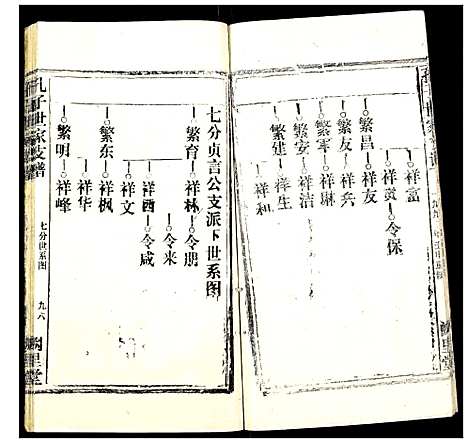 祥富
祥贡 令保
繁昌 祥友
繁友 祥兵
繁军 祥琳
繁安 祥洁
繁建 祥生
祥和
七分贞言公支派下世系图
繁育 祥林 令朋
令来
祥酉 令咸
繁东 祥文
祥枫
祥华
繁明 祥峰
孔子世家支谱
七分世系图
九六
阙里堂